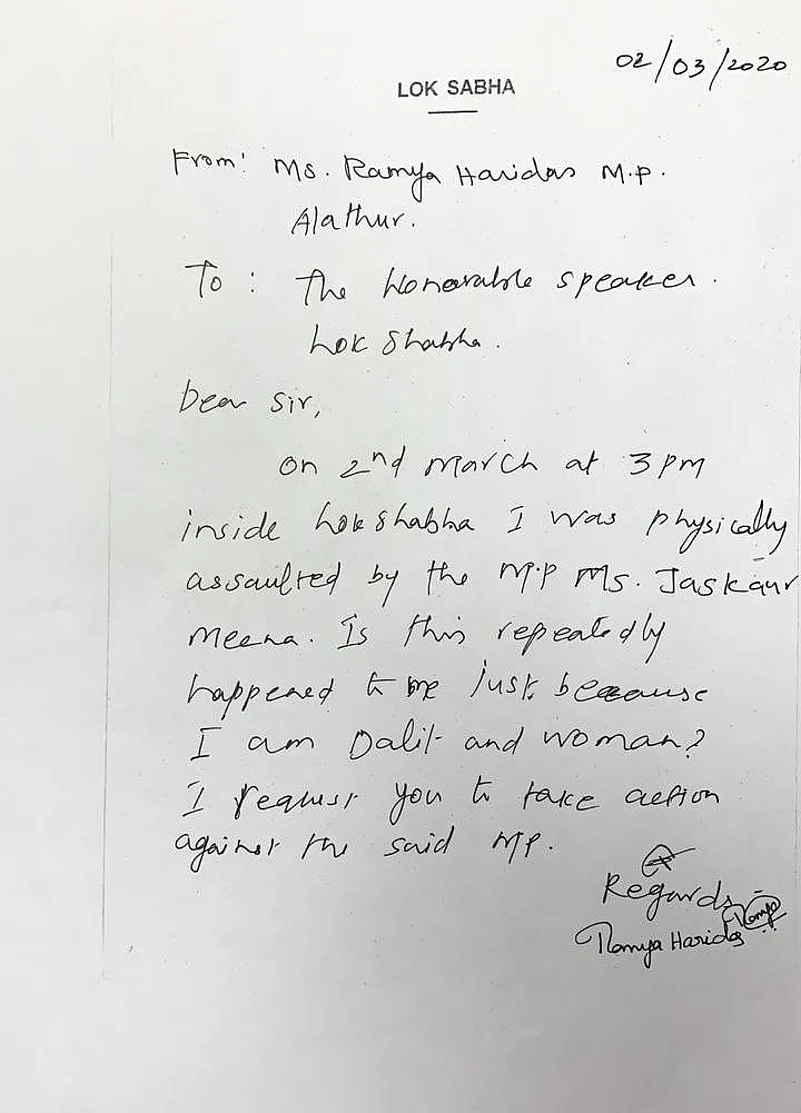 02/03/2020
LOK SABHA
From: Ms. Ramya Haridas M.P.
Alathur.
To : The Honorable speaker.
Lok Shabha.
Dear Sir,
On 2nd March at 3 pm
inside Lok shabha I was physically
assaulted by the M.P Ms. Jaskaur
Meena. Is this repeatedly
happened to me just because
I am Dalit and woman?
I request you to take action
against the said MP.
Regards
Ramya Haridas